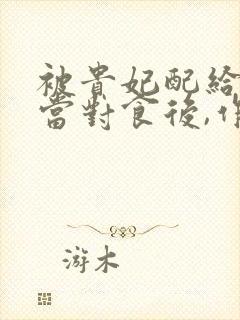 被貴妃配給
當對食後,作
游木